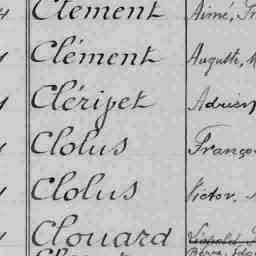 Clément Aimé,
Clément Auguste,
Clérijet Adrien
Clolus Franço
Clolus Victor.
Clouard Léopold